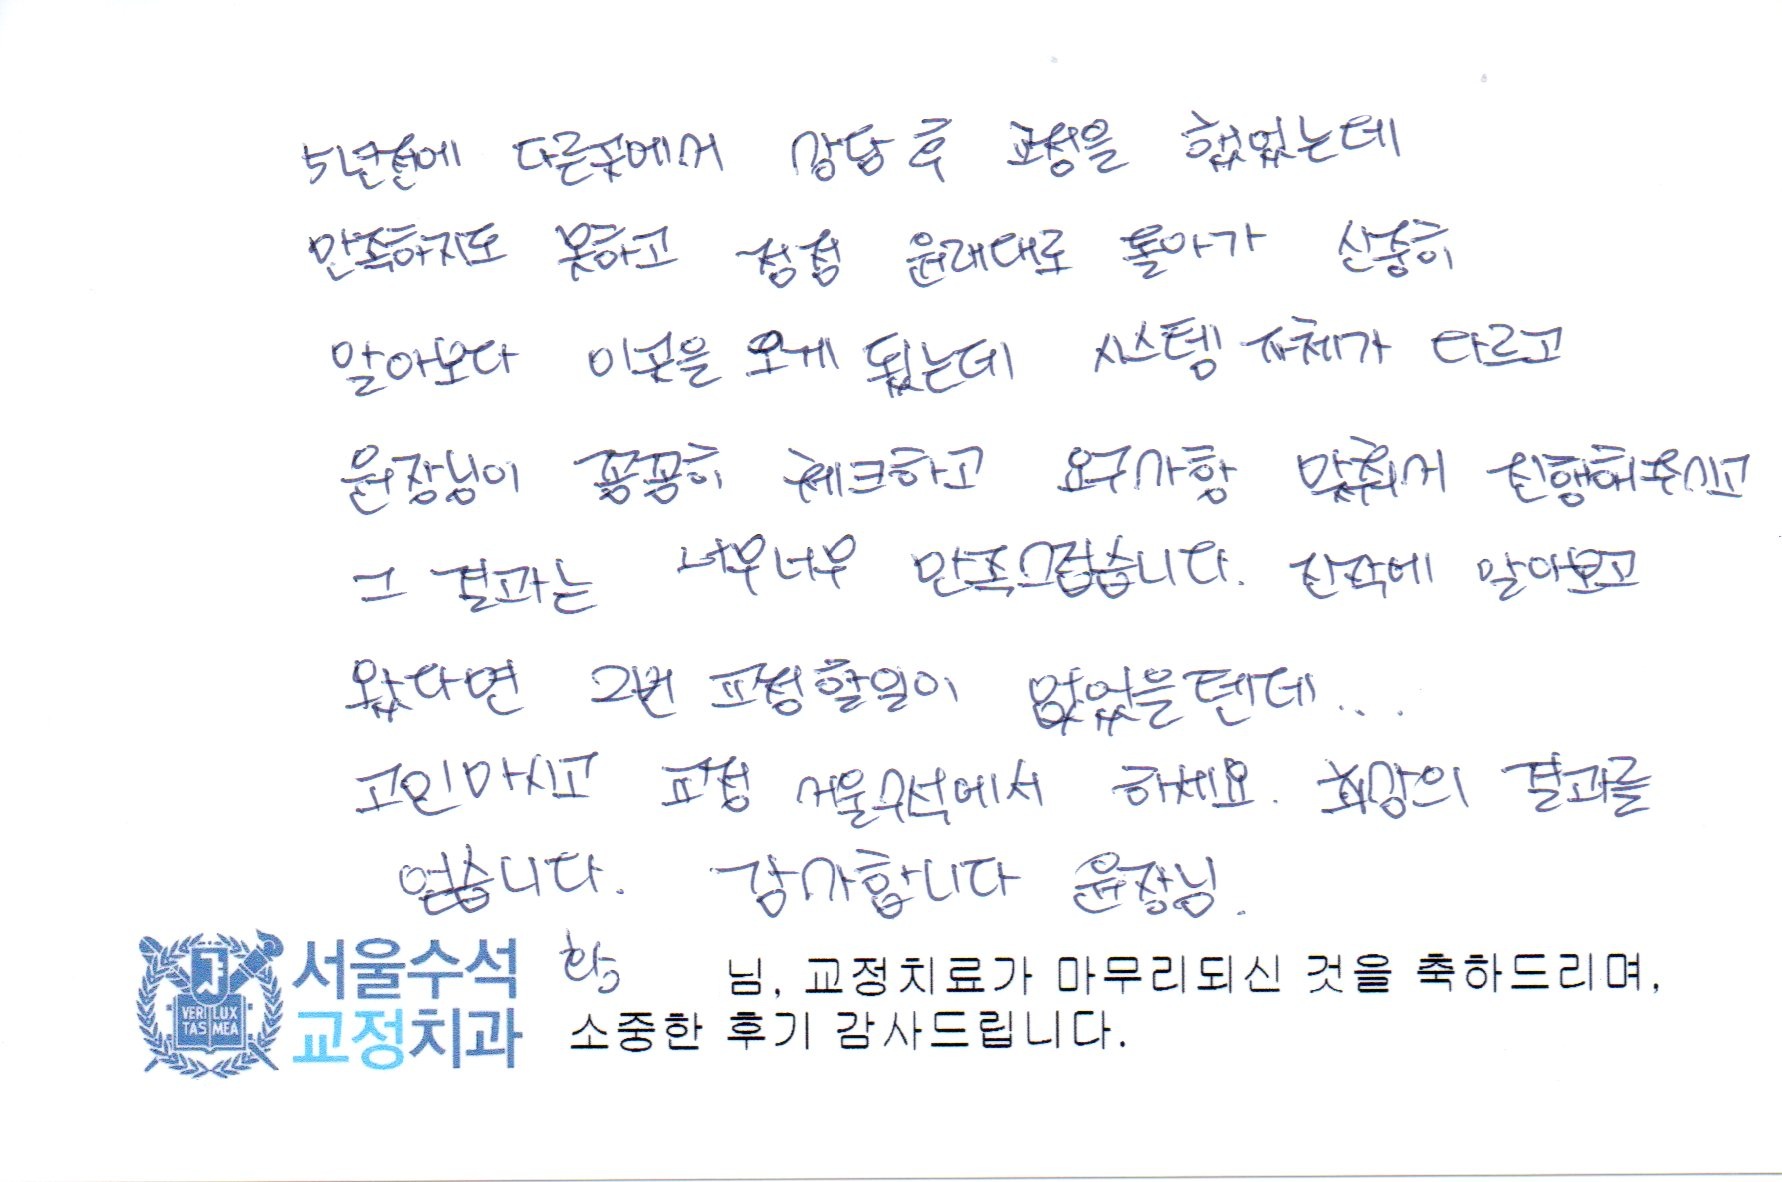 5년전에 다른곳에서 상담 후 교정을 했었는데
만족하지도 못하고 점점 원래대로 돌아가 신중히
알아보다 이곳을 오게 됬는데 시스템 자체가 다르고
원장님이 꼼꼼히 체크하고 요구사항 맞춰서 진행해주시고
그 결과는 너무너무 만족스럽습니다. 진작에 알아보고
왔다면 2번 교정할일이 없었을텐데...
고민마시고 교정 서울수석에서 하세요. 최상의 결과를
얻습니다. 감사합니다 원장님.
서울수석
교정치과
VERI LUX
TAS MEA
님, 교정치료가 마무리되신 것을 축하드리며,
소중한 후기 감사드립니다.